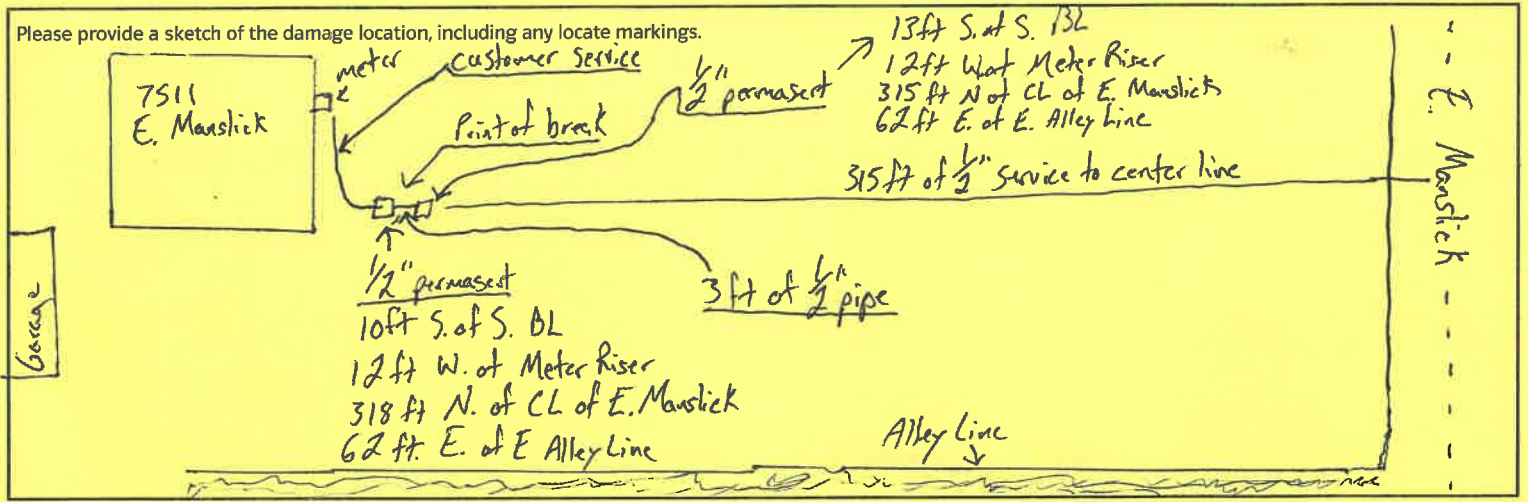 Please provide a sketch of the damage location, including any locate markings.
7511
E. Manslick
meter
customer service
Point of break
1/2" permasert
13ft S. of S. BL
12ft W. of Meter Riser
315 ft N of CL of E. Manslick
62ft E. of E. Alley Line
315 ft of 1/2" service to center line
E. Manslick
Garage
1/2" permasert
10ft S. of S. BL
12ft W. of Meter Riser
318 ft N. of CL of E. Manslick
62 ft. E. of E Alley Line
3 ft of 1/2" pipe
Alley Line